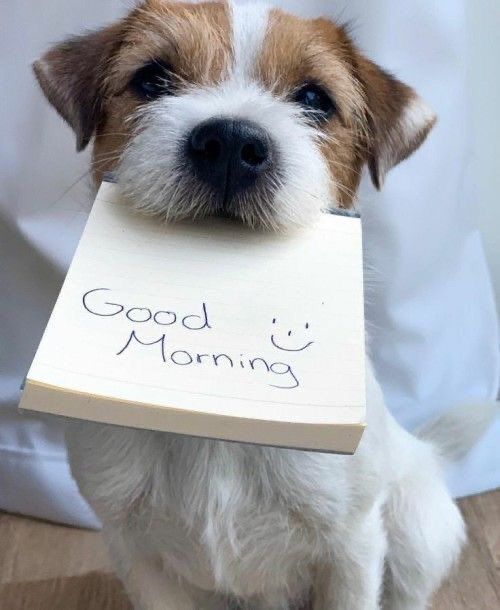 Good
Morning